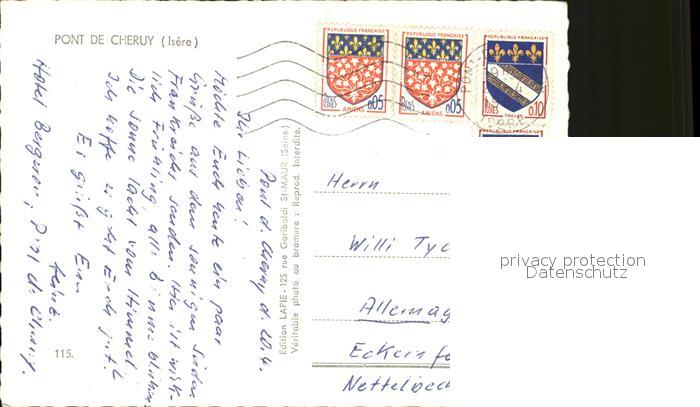 PONT DE CHERUY (Isère)
REPUBLIQUE FRANÇAISE
REPUBLIQUE FRANÇAISE
REPUBLIQUE FRANÇAISE
POSTES 0,05
AMIENS
POSTES 0,05
AMIENS
POSTES 0,10
TROYES
Pont d. Cheruy d. 20.4.
Ihr Lieben!
Möchte Euch heute ein paar
Grüße aus dem sonnigen Süden
Frankreichs senden. Hier ist wirk-
lich Frühling, alle Bäume blühen
Die Sonne lacht vom Himmel
Ich hoffe es geht Euch gut!
Es grüßt Euch
Hotel Bergeron, Pont d. Cheruy.
Edition LAPIE - 125 rue Garibaldi St-MAUR (Seine)
Véritable photo au bromure : Reprod. Interdite.
Herrn
Willi
Allemag
Eckernfö
Nettelbec
115.
privacy protection
Datenschutz